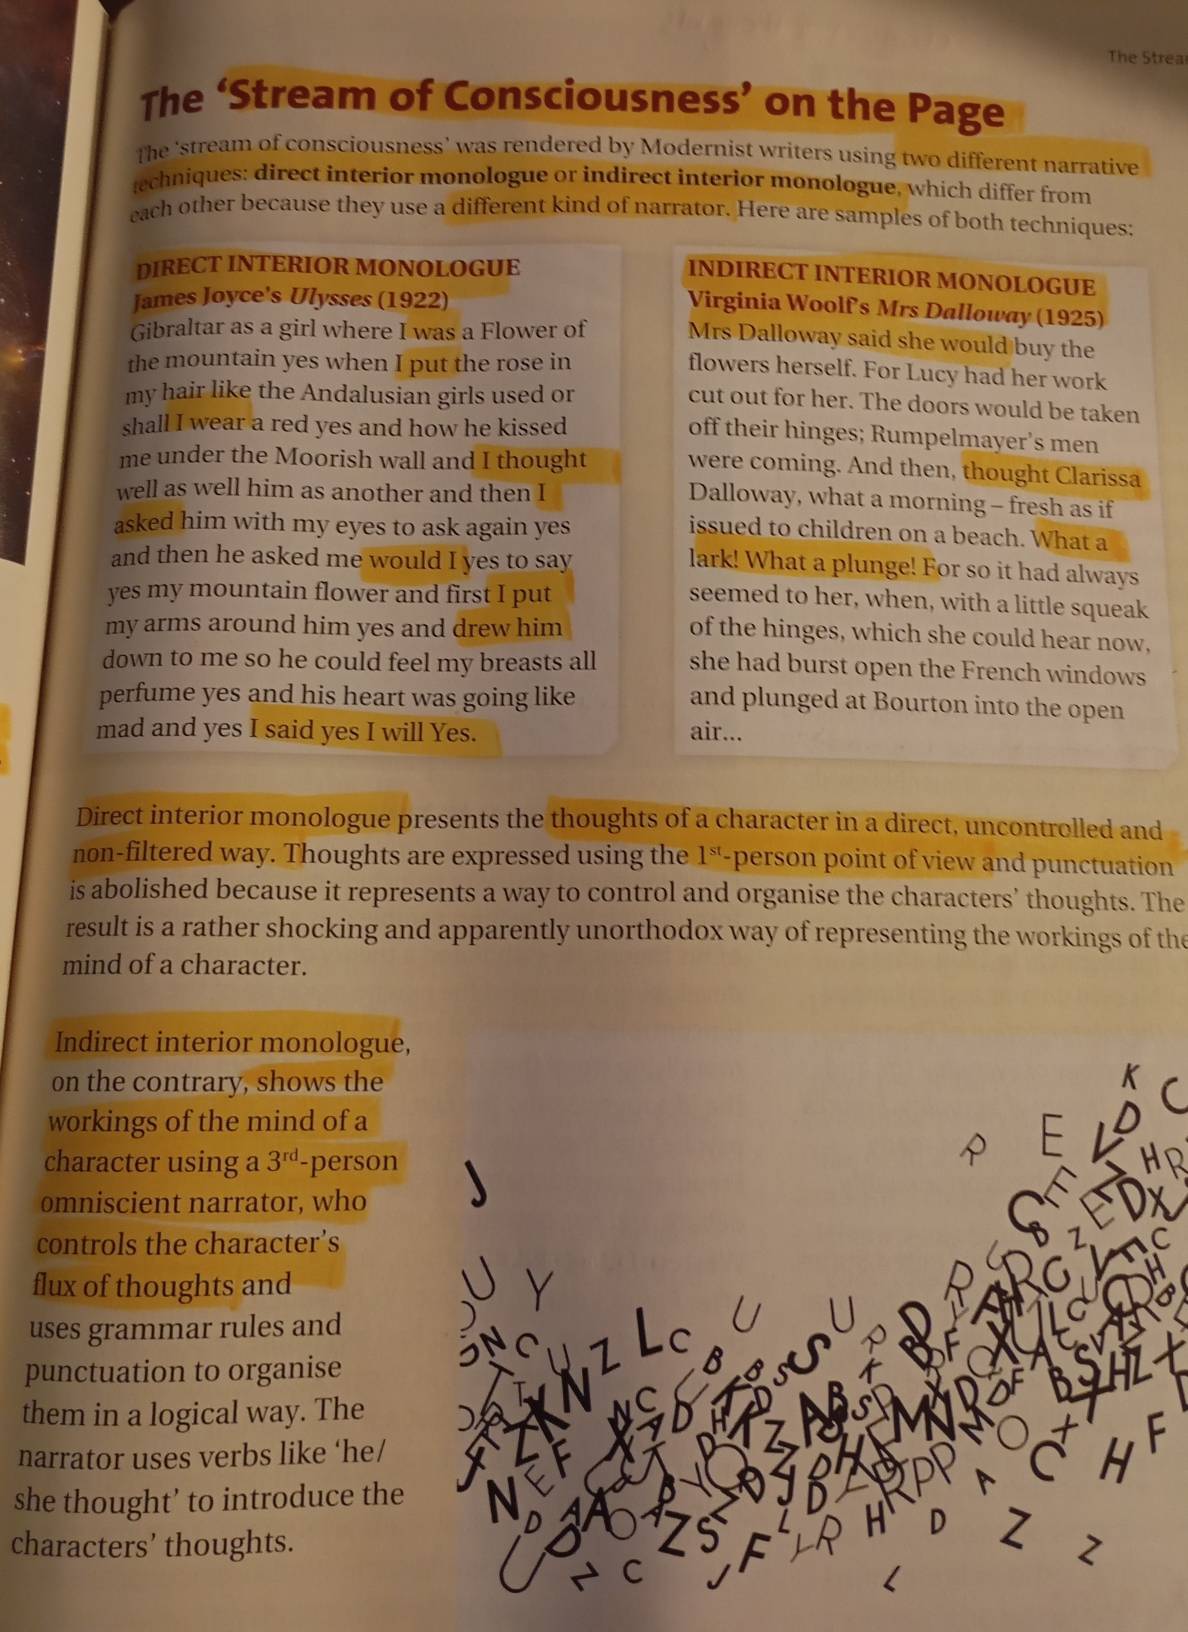 The Strea
The ‘Stream of Consciousness’ on the Page
The ‘stream of consciousness’ was rendered by Modernist writers using two different narrative
techniques: direct interior monologue or indirect interior monologue, which differ from
each other because they use a different kind of narrator. Here are samples of both techniques:
DIRECT INTERIOR MONOLOGUE
James Joyce's Ulysses (1922)
Gibraltar as a girl where I was a Flower of
the mountain yes when I put the rose in
my hair like the Andalusian girls used or
shall I wear a red yes and how he kissed
me under the Moorish wall and I thought
well as well him as another and then I
asked him with my eyes to ask again yes
and then he asked me would I yes to say
yes my mountain flower and first I put
my arms around him yes and drew him
down to me so he could feel my breasts all
perfume yes and his heart was going like
mad and yes I said yes I will Yes.
INDIRECT INTERIOR MONOLOGUE
Virginia Woolf's Mrs Dalloway (1925)
Mrs Dalloway said she would buy the
flowers herself. For Lucy had her work
cut out for her. The doors would be taken
off their hinges; Rumpelmayer's men
were coming. And then, thought Clarissa
Dalloway, what a morning – fresh as if
issued to children on a beach. What a
lark! What a plunge! For so it had always
seemed to her, when, with a little squeak
of the hinges, which she could hear now,
she had burst open the French windows
and plunged at Bourton into the open
air...
Direct interior monologue presents the thoughts of a character in a direct, uncontrolled and
non-filtered way. Thoughts are expressed using the 1st-person point of view and punctuation
is abolished because it represents a way to control and organise the characters’ thoughts. The
result is a rather shocking and apparently unorthodox way of representing the workings of the
mind of a character.
Indirect interior monologue,
on the contrary, shows the
workings of the mind of a
character using a 3rd-person
omniscient narrator, who
controls the character’s
flux of thoughts and
uses grammar rules and
punctuation to organise
them in a logical way. The
narrator uses verbs like ‘he/
she thought’ to introduce the
characters’ thoughts.